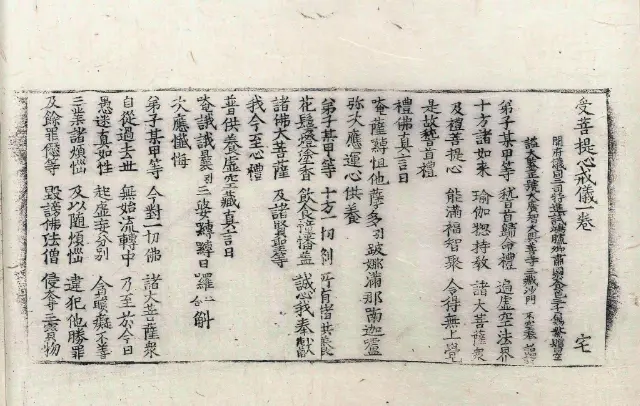 受菩提心戒儀一卷 宅
開府儀同三司特進試鴻臚卿肅國公食邑三千戶賜紫贈司空
謚大鑒正號大廣智大興善寺三藏沙門不空奉 詔譯
弟子某甲等 稽首歸命禮 遍虛空法界
十方諸如來 瑜伽揔持教 諸大菩薩衆
及禮菩提心 能滿福智聚 令得無上覺
是故稽首禮
禮佛真言曰
唵薩嚩怛他蘖多引跛娜滿那曩迦嚧弭
次應運心供養
弟子某甲等 十方一切剎 所有諸供養
花鬘燈塗香 飲食幢幡蓋 誠心我奉獻
諸佛大菩薩 及諸賢聖等
我今至心禮
普供養虛空藏真言曰
唵誐誐曩三婆嚩嚩日羅二合斛
次應懺悔
弟子某甲等 今對一切佛 諸大菩薩衆
自從過去世 無始流轉中 乃至於今日
愚迷真如性 起虛妄分別 貪瞋癡不善
三業諸煩惱 及以隨煩惱 違犯他勝罪
及餘罪愆等 毀謗佛法僧 侵奪三寶物